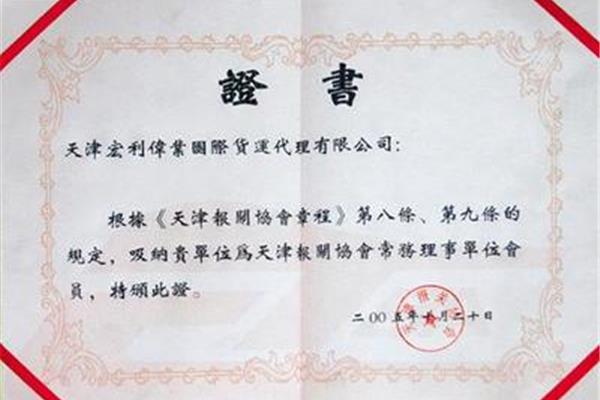 證書
天津宏利偉業國際貨運代理有限公司：
根據《天津報關協會章程》第八條、第九條的
規定，吸納貴單位爲天津報關協會常務理事單位會
員，特頒此證。
二00五年十月二十日